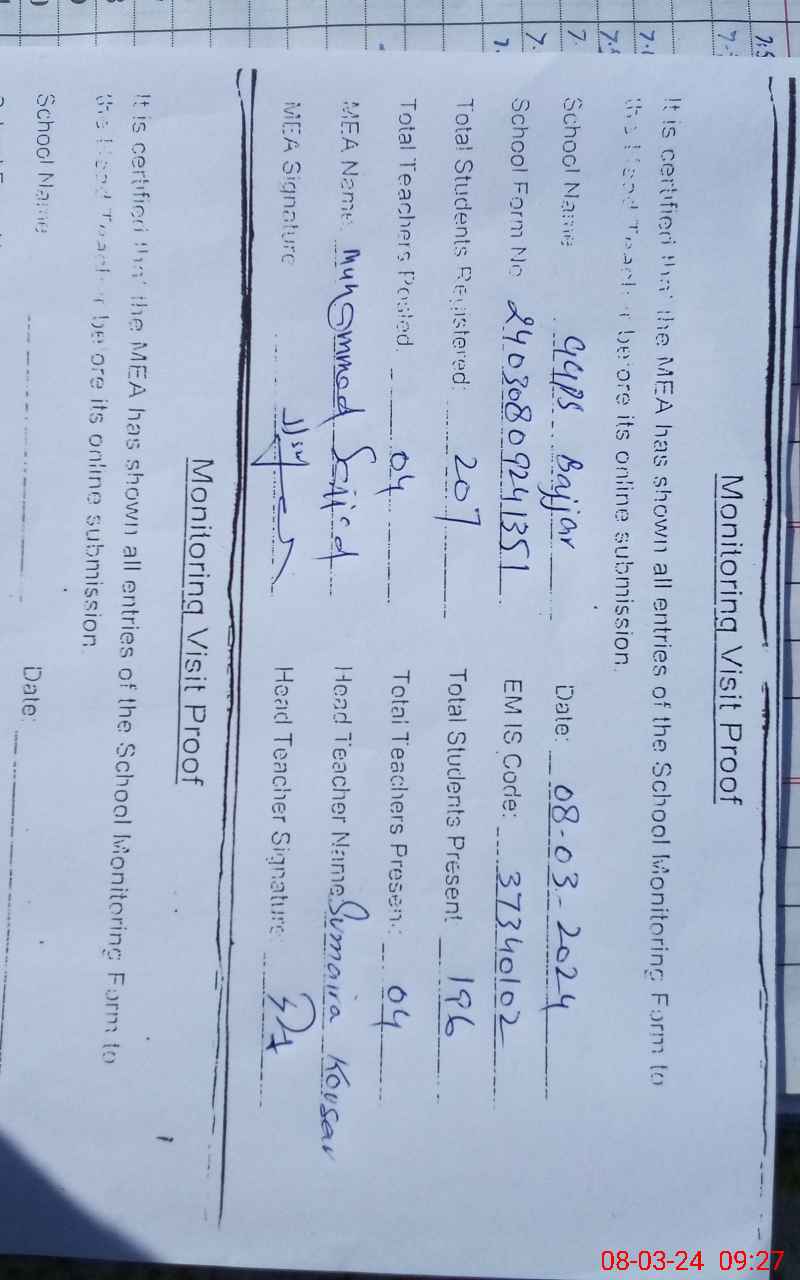 Monitoring Visit Proof
It is certified that the MEA has shown all entries of the School Monitoring Form to
the Head Teacher before its online submission.
School Name GGPS Bajjar Date: 08-03-2024
School Form No 24030809241351 EMIS Code: 37340102
Total Students Registered: 207 Total Students Present 196
Total Teachers Posted. 04 Total Teachers Present: 04
MEA Name Muhammad Sajid Head Teacher Name Sumaira Kousar
MEA Signature Head Teacher Signature:
Monitoring Visit Proof
It is certified that the MEA has shown all entries of the School Monitoring Form to
the Head Teacher before its online submission.
School Name Date:
08-03-24 09:27